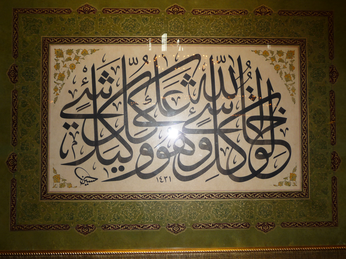 الله خالق كل شئ وهو على كل شئ وكيل
١٤٣١